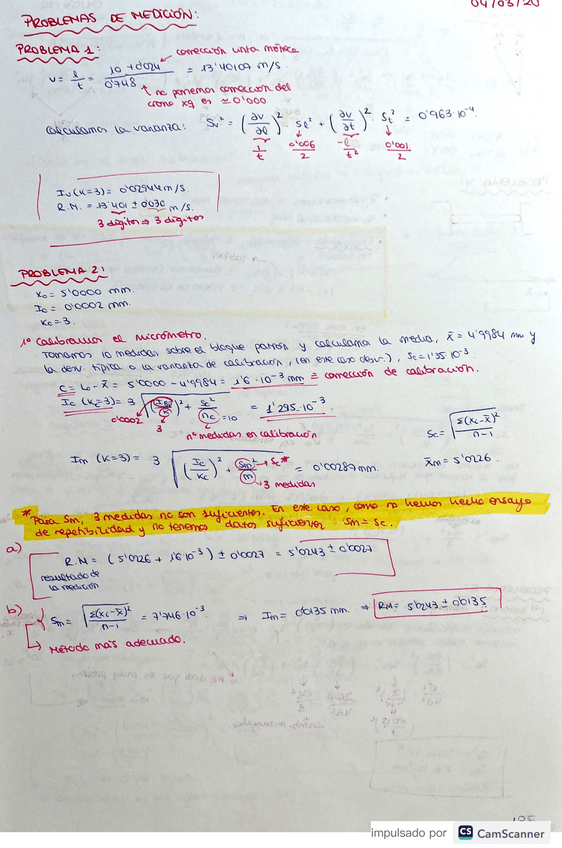 04/03/20
PROBLEMAS DE MEDICIÓN:
PROBLEMA 1:
corrección cinta métrica
v = l/t = (10 + 0'024)/0'748 = 13'40107 m/s.
no ponemos corrección del
crono xq es ≃ 0'000
Calculamos la varianza: Sv² = (∂v/∂l)² · Sl² + (∂v/∂t)² · St² = 0'963·10⁻⁴
1/t 0'006/2 -l/t² 0'001/2
Iv (K=3) = 0'02944 m/s.
R.M. = 13'401 ± 0'030 m/s.
3 dígitos ⇒ 3 dígitos
PROBLEMA 2:
x₀ = 5'0000 mm.
I₀ = 0'0002 mm.
K₀ = 3.
1º Calibramos el micrómetro.
Tomamos 10 medidas sobre el bloque patrón y calculamos la media, x̄ = 4'9984 mm y
la desv. típica o la varianza de calibración, (en este caso desv.), Sc = 1'35·10⁻³
C = L₀ - x̄ = 5'0000 - 4'9984 = 1'6·10⁻³ mm ≡ corrección de calibración.
Ic (Kc=3) = 3 √((I₀/K)² + Sc²/nc) = 1'295·10⁻³.
0'0002 3 =10
nº medidas en calibración
Sc = √(Σ(xi-x̄)²/n-1)
Im (K=3) = 3 √((Ic/Kc)² + Sm²/m) = 0'00287 mm.
→ Sc*
→ 3 medidas
x̄m = 5'0226.
* Para Sm, 3 medidas no son suficientes. En este caso, como no hemos hecho ensayo
de repetibilidad y no tenemos datos suficientes Sm = Sc.
a)
R.M = (5'0226 + 1'6·10⁻³) ± 0'0027 = 5'0243 ± 0'0027
resultado de
la medición
b)
Sm = √(Σ(xi-x̄)²/n-1) = 7'746·10⁻³ ⇒ Im = 0'0135 mm. ⇒ RM = 5'0243 ± 0'0135
→ Método más adecuado.
impulsado por CS CamScanner